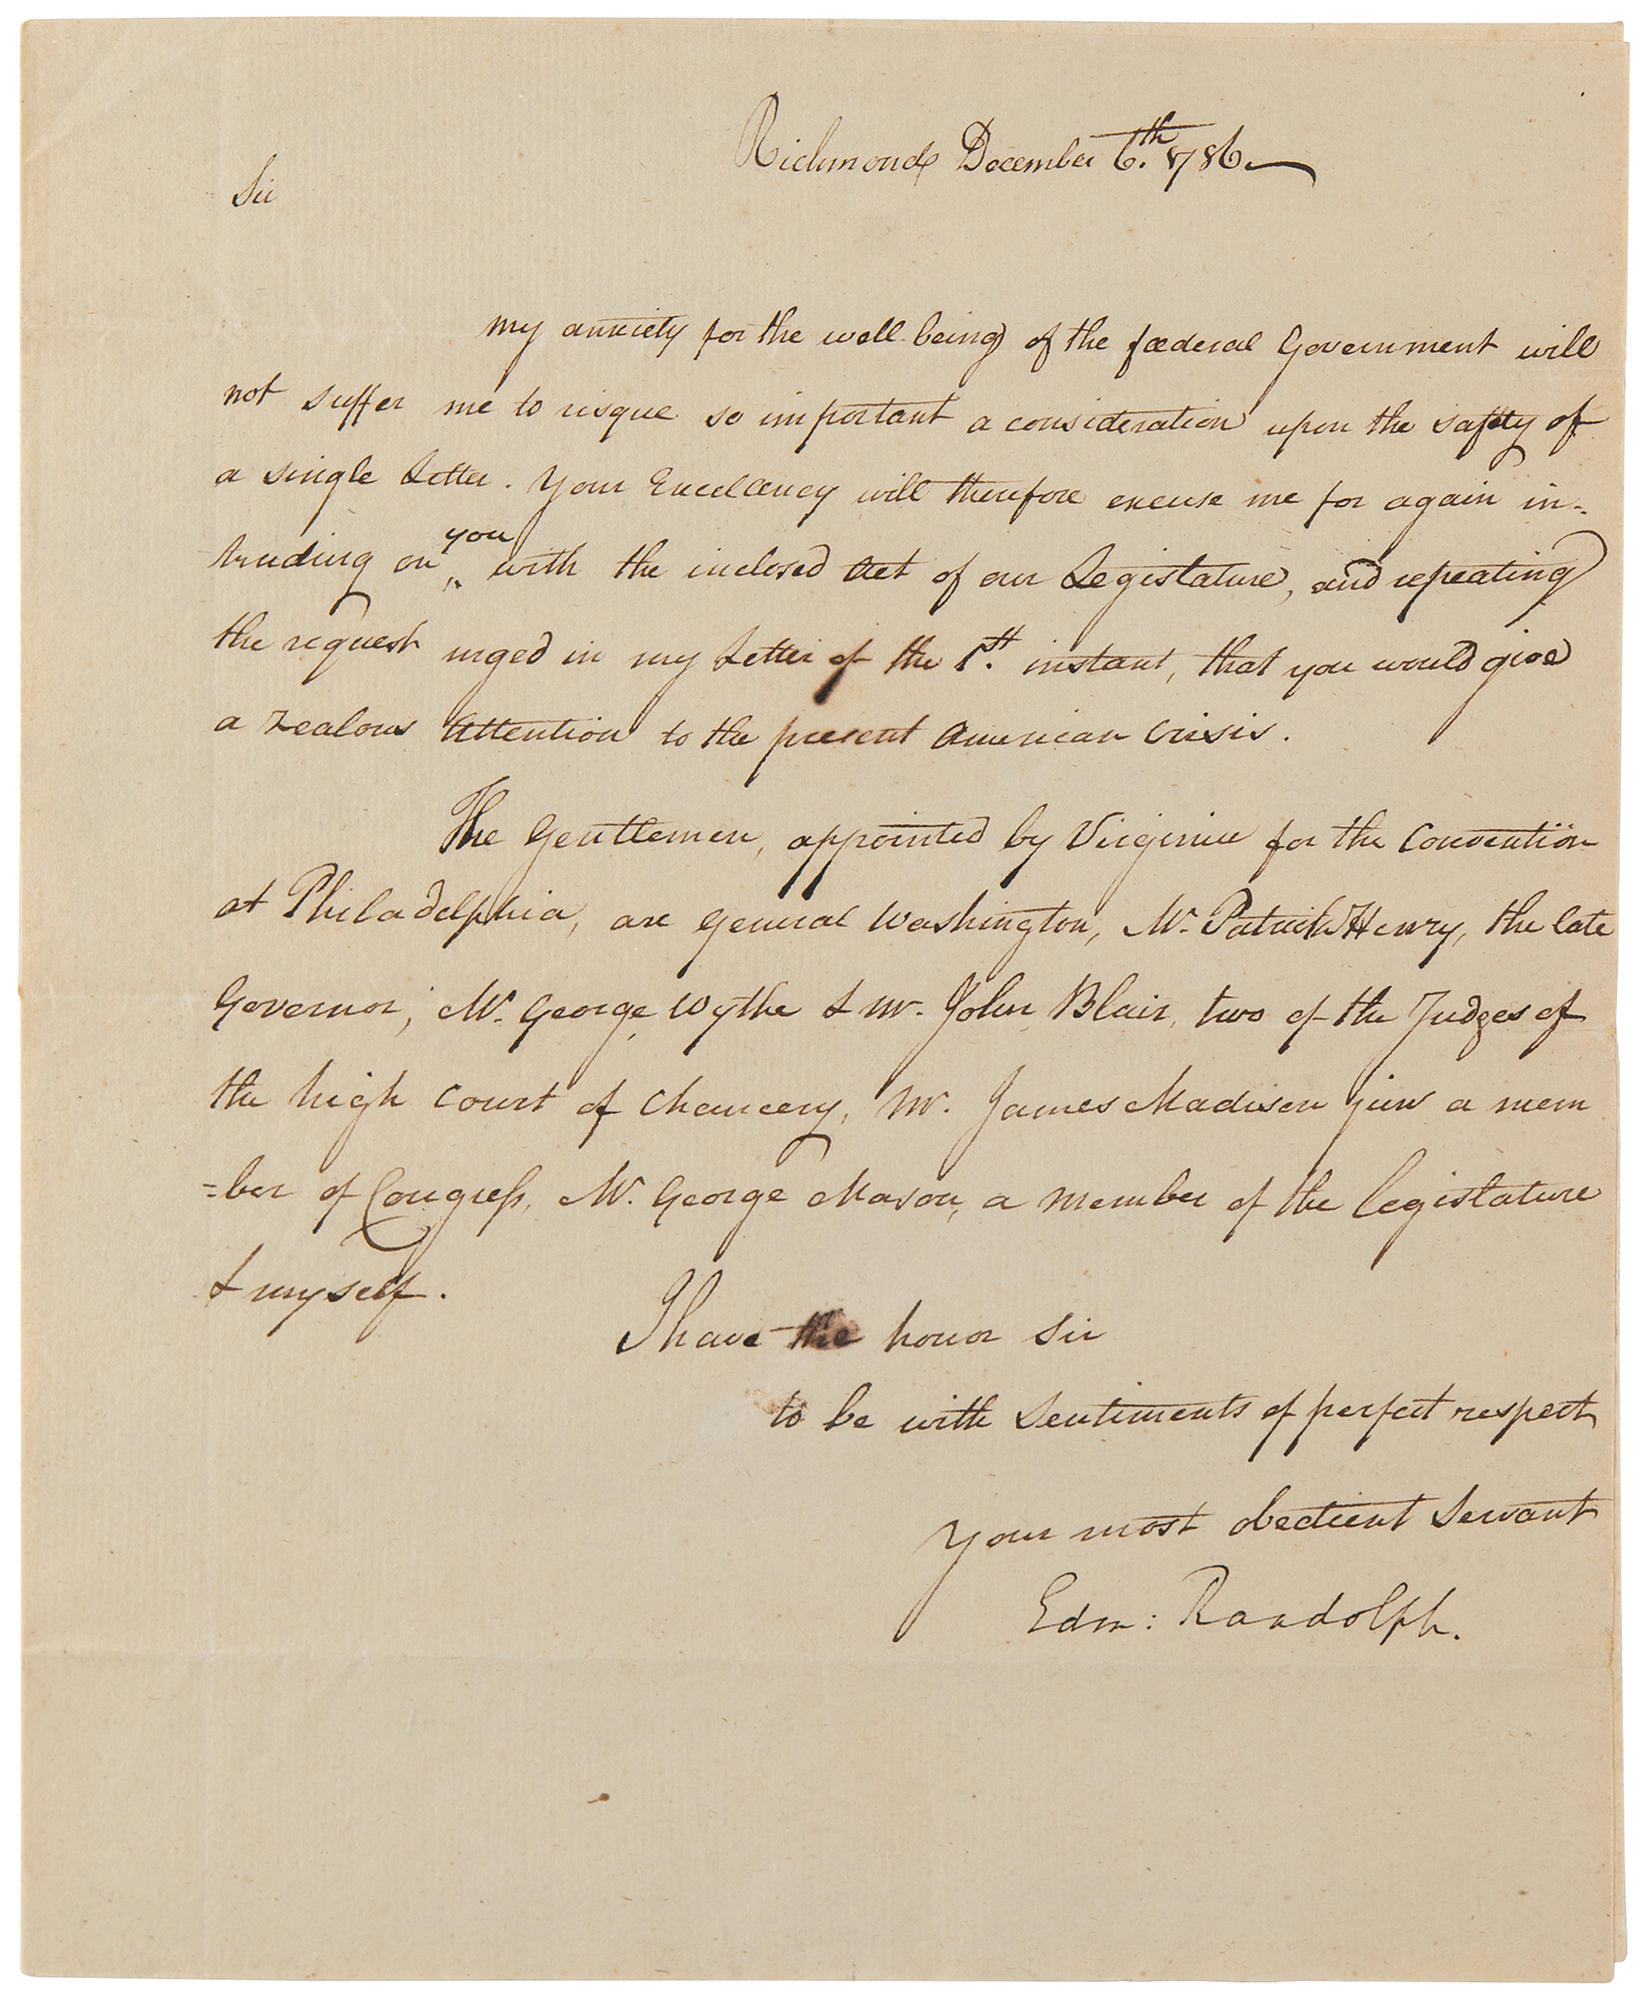 Richmond December 6.th 1786.
Sir
My anxiety for the well-being of the fœderal Government will
not suffer me to risque so important a consideration upon the safety of
a single Letter. Your Excellency will therefore excuse me for again in-
truding on you with the inclosed Act of our Legislature, and repeating
the request urged in my Letter of the 1st. instant, that you would give
a zealous attention to the present American Crisis.
The Gentlemen, appointed by Virginia for the Convention
at Philadelphia, are General Washington, Mr. Patrick Henry, the late
Governor, Mr. George Wythe & Mr. John Blair, two of the Judges of
the high Court of Chancery, Mr. James Madison junr a mem
=ber of Congress, Mr. George Mason, a member of the legislature
& myself.
I have the honor Sir
to be with Sentiments of perfect respect
Your most obedient Servant
Edm: Randolph.